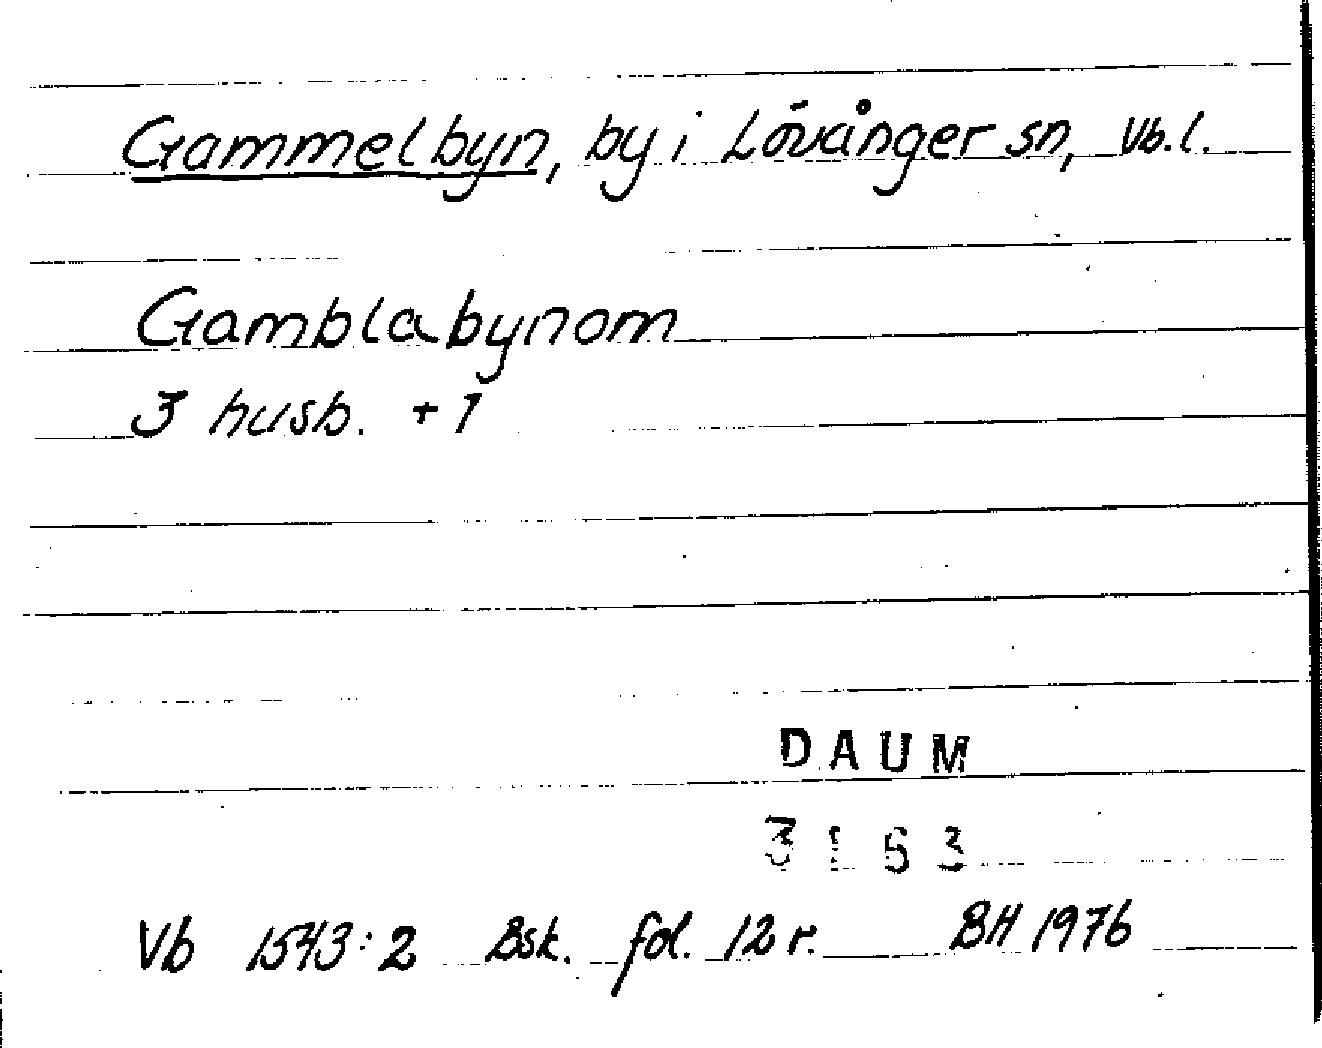 Gammelbyn, by i Lövånger sn, Vb.l.
Gamblabynom
3 husb. + 1
DAUM
3153
Vb 1543:2 Bsk. fol. 12 r. BH 1976